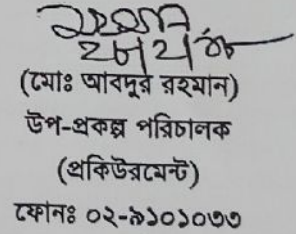 (মোঃ আবদুর রহমান)
উপ-প্রকল্প পরিচালক
(প্রকিউরমেন্ট)
ফোনঃ ০২-৯১০১০৭৭